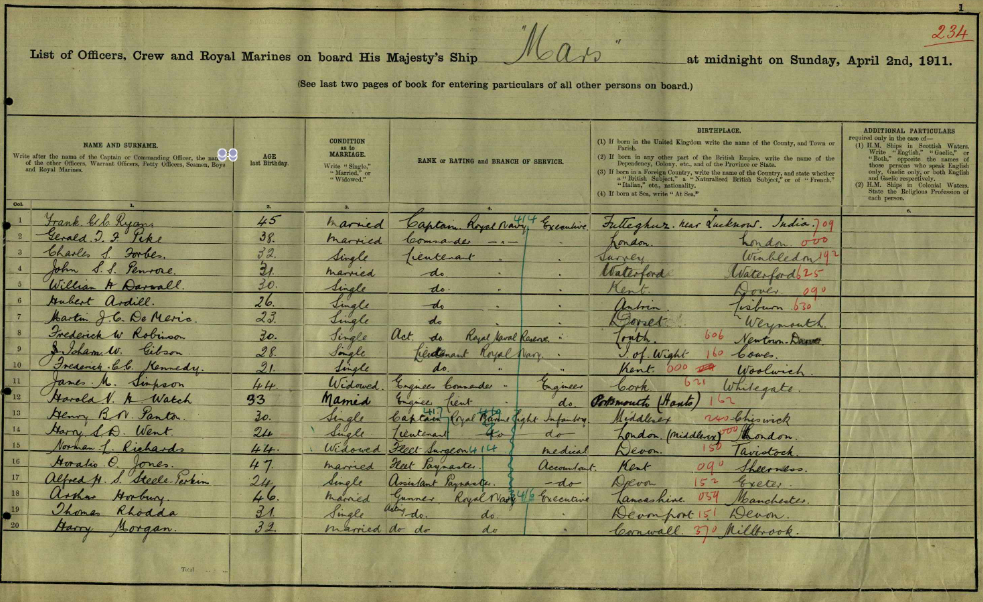 1
234
List of Officers, Crew and Royal Marines on board His Majesty's Ship "Mars" at midnight on Sunday, April 2nd, 1911.
(See last two pages of book for entering particulars of all other persons on board.)
NAME AND SURNAME. AGE last Birthday. CONDITION as to MARRIAGE. RANK or RATING and BRANCH OF SERVICE. BIRTHPLACE. ADDITIONAL PARTICULARS required only in the case of—
Write after the name of the Captain or Commanding Officer, the names of the other Officers, Warrant Officers, Petty Officers, Seamen, Boys and Royal Marines.
Write "Single," "Married," or "Widowed."
(1) If born in the United Kingdom write the name of the County, and Town or Parish.
(2) If born in any other part of the British Empire, write the name of the Dependency, Colony, etc., and of the Province or State.
(3) If born in a Foreign Country, write the name of the Country, and state whether a "British Subject," a "Naturalised British Subject," or of "French," "Italian," etc., nationality.
(4) If born at Sea, write "At Sea."
(1) H.M. Ships in Scottish Waters. Write "English," "Gaelic," or "Both," opposite the names of those persons who speak English only, Gaelic only, or both English and Gaelic respectively.
(2) H.M. Ships in Colonial Waters. State the Religious Profession of each person.
Col. 1. 2. 3. 4. 5. 6.
1 Frank C.C. Ryan 45 Married Captain Royal Navy 414 Executive Futteghur near Lucknow. India. 709
2 Gerald T. F. Pike 38. Married Commander London. London. 000
3 Charles S. Forbes. 32. Single Lieutenant " Surrey Wimbledon 192
4 John S. S. Penrose. 31. Married do " Waterford Waterford 625
5 William H Darwall. 30. Single do " Kent. Dover 090
6 Hubert Ardill. 26. Single do " Antrim Lisburn 630
7 Martin J. C. De Meric. 23. Single do " Dorset Weymouth.
8 Frederick W Robinson 30. Single Act. do Royal Naval Reserve 606 Newtown
9 Isham W. Gibson 28. Single Lieutenant Royal Navy. I of Wight 160 Cowes.
10 Frederick C.C. Kennedy. 21. Single do " Kent. 000 Woolwich
11 James M. Simpson 44. Widowed Engineer Commander " Engineer Cork 621 Whitegate.
12 Harold V. H Watch 33 Married Engineer Lieut " do Portsmouth (Hants) 162
13 Henry B. N Panton. 30. Single Captain 417 Royal Marine Light Infantry. Middlesex Chiswick
14 Harry S. D. Went 24 Single Lieutenant do do London (Middlesex) 000 London.
15 Norman L. Richards 44. Widowed Fleet Surgeon 414 medical Devon. 150 Tavistock.
16 Horatio O. Jones. 47 Married Fleet Paymaster. Accountant. Kent 090 Sheerness.
17 Alfred H. S. Steele-Perkin. 24. Single Assistant Paymaster. do Devon 152 Exeter
18 Arthur Horbury. 46. Married Gunner Royal Navy 346 Executive Lancashire 054 Manchester.
19 Thomas Rhodda 31 Single Acting do. do " Devonport 151 Devon.
20 Harry Morgan. 32. Married do do do " Cornwall 370 Millbrook.